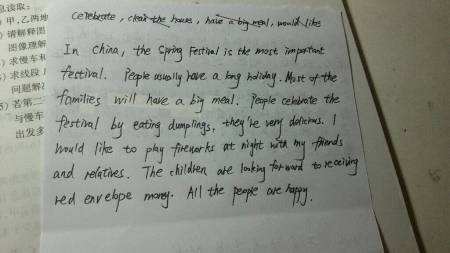 celebrate, clean the house, have a big meal, would like
In China, the Spring Festival is the most important
festival. People usually have a long holiday. Most of the
families will have a big meal. People celebrate the
festival by eating dumplings, they're very delicious. I
would like to play fireworks at night with my friends
and relatives. The children are looking forward to receiving
red envelope money. All the people are happy.
息读取:
) 甲,乙两地
) 请解释图
图像理解
) 求慢车和
) 求线段
问题解
5) 若第二
与慢车
出发多